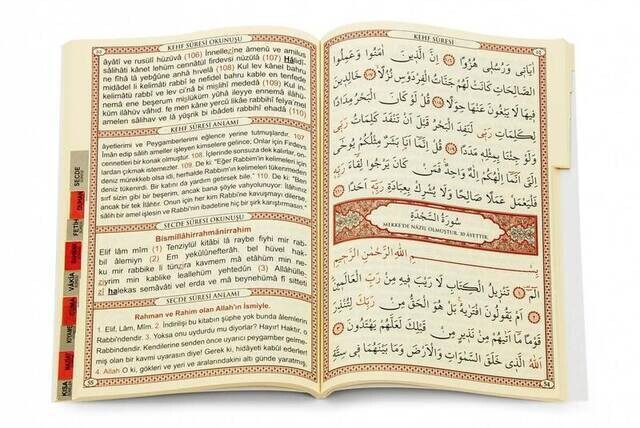 KEHF SÛRESİ
اٰيَاتِى وَرُسُلِى هُزُوًا ﴿١٠٦﴾ اِنَّ الَّذِينَ اٰمَنُوا وَعَمِلُوا
الصَّالِحَاتِ كَانَتْ لَهُمْ جَنَّاتُ الْفِرْدَوْسِ نُزُلًا ﴿١٠٧﴾ خَالِدِينَ
فِيهَا لَا يَبْغُونَ عَنْهَا حِوَلًا ﴿١٠٨﴾ قُلْ لَوْ كَانَ الْبَحْرُ مِدَادًا
لِكَلِمَاتِ رَبِّى لَنَفِدَ الْبَحْرُ قَبْلَ اَنْ تَنْفَدَ كَلِمَاتُ رَبِّى
وَلَوْ جِئْنَا بِمِثْلِهِ مَدَدًا ﴿١٠٩﴾ قُلْ اِنَّمَا اَنَا بَشَرٌ مِثْلُكُمْ يُوحٰى
اِلَىَّ اَنَّمَا اِلٰهُكُمْ اِلٰهٌ وَاحِدٌ فَمَنْ كَانَ يَرْجُوا لِقَاءَ رَبِّهِ
فَلْيَعْمَلْ عَمَلًا صَالِحًا وَلَا يُشْرِكْ بِعِبَادَةِ رَبِّهِ اَحَدًا
سُورَةُ السَّجْدَةِ
MEKKE'DE NÂZİL OLMUŞTUR. 30 ÂYETTİR.
بِسْمِ اللّٰهِ الرَّحْمٰنِ الرَّحِيمِ
الٓمٓ ﴿١﴾ تَنْزِيلُ الْكِتَابِ لَا رَيْبَ فِيهِ مِنْ رَبِّ الْعَالَمِينَ
﴿٢﴾ اَمْ يَقُولُونَ افْتَرٰيهُ بَلْ هُوَ الْحَقُّ مِنْ رَبِّكَ لِتُنْذِرَ
قَوْمًا مَا اَتٰيهُمْ مِنْ نَذِيرٍ مِنْ قَبْلِكَ لَعَلَّهُمْ يَهْتَدُونَ ﴿٣﴾
اَللّٰهُ الَّذِى خَلَقَ السَّمٰوَاتِ وَالْاَرْضَ وَمَا بَيْنَهُمَا فِى سِتَّةِ
54
KEHF SÛRESİ OKUNUŞU
âyâtî ve rusulî hüzüvâ (106) İnnellezîne âmenû ve amilus
sâlihâti kânet lehüm cennâtül firdevsi nüzülâ (107) Hâlidî-
ne fîhâ lâ yebğûne anhâ hıvelâ (108) Kul lev kânel bahru
midâdel li kelimâti rabbî le nefidel bahru kable en tenfede
kelimâtü rabbî ve lev ci'nâ bi mislihî mededâ (109) Kul inne-
mâ ene beşerum mislüküm yûhâ ileyye ennemâ ilâhü-
küm ilâhüv vâhid. fe men kâne yercû likâe rabbihî felya'mel
amelen sâlihav ve lâ yüşrik bi ibâdeti rabbihî ehadâ (110)
KEHF SÛRESİ ANLAMI
âyetlerimi ve Peygamberlerimi eğlence yerine tutmuşlardır. 107.
İman edip sâlih ameller işleyen kimselere gelince; Onlar için Firdevs
cennetleri bir konak olmuştur. 108. İçlerinde sonsuza dek kalırlar, on-
lardan çıkmak istemezler. 109. De ki: "Eğer Rabbim'in kelimeleri için
deniz mürekkeb olsa idi, herhalde Rabbim'in kelimeleri tükenmeden
deniz tükenirdi. Bir katını da yardım getirsek bile." 110. De ki: "Ben
sırf sizin gibi bir beşerim, ancak bana şöyle vahyolunuyor: İlâhınız
ancak bir tek İlâhtır. Onun için her kim Rabbi'ne kavuşmayı dilerse,
sâlih bir amel işlesin ve Rabbi'nin ibadetine hiç bir şirk karıştırmasın."
SECDE SÛRESİ OKUNUŞU
Bismillâhirrahmânirrahim
Elif lâm mîm (1) Tenzîylül kitâbi lâ raybe fîyhi mir rab-
bil âlemiyn (2) Em yekûlûnefterâh. bel hüvel hak-
ku mir rabbike li tünzira kavmem mâ etâhüm min ne-
ziyrim min kablike leallehüm yehtedûn (3) Allâhülle-
zî halekas semâvâti vel erda ve mâ beynehümâ fî sitteti
SECDE SÛRESİ ANLAMI
Rahman ve Rahim olan Allah'ın İsmiyle.
1. Elif, Lâm, Mîm. 2. İndirilişi bu kitabın şüphe yok bunda âlemlerin
Rabbi'ndendir. 3. Yoksa onu uydurdu mu diyorlar? Hayır! Haktır, o
Rabbi'ndendir. Kendilerine senden önce uyarıcı peygamber gelme-
miş olan bir kavmi uyarasın diye! Gerek ki, hidâyeti kabûl ederler!
4. Allah O ki, gökleri ve yeri ve aralarındakini altı günde yaratmış,
55
SECDE
DUHAN
FETH
VÂKIA
CUMA
KIYAME
KISA